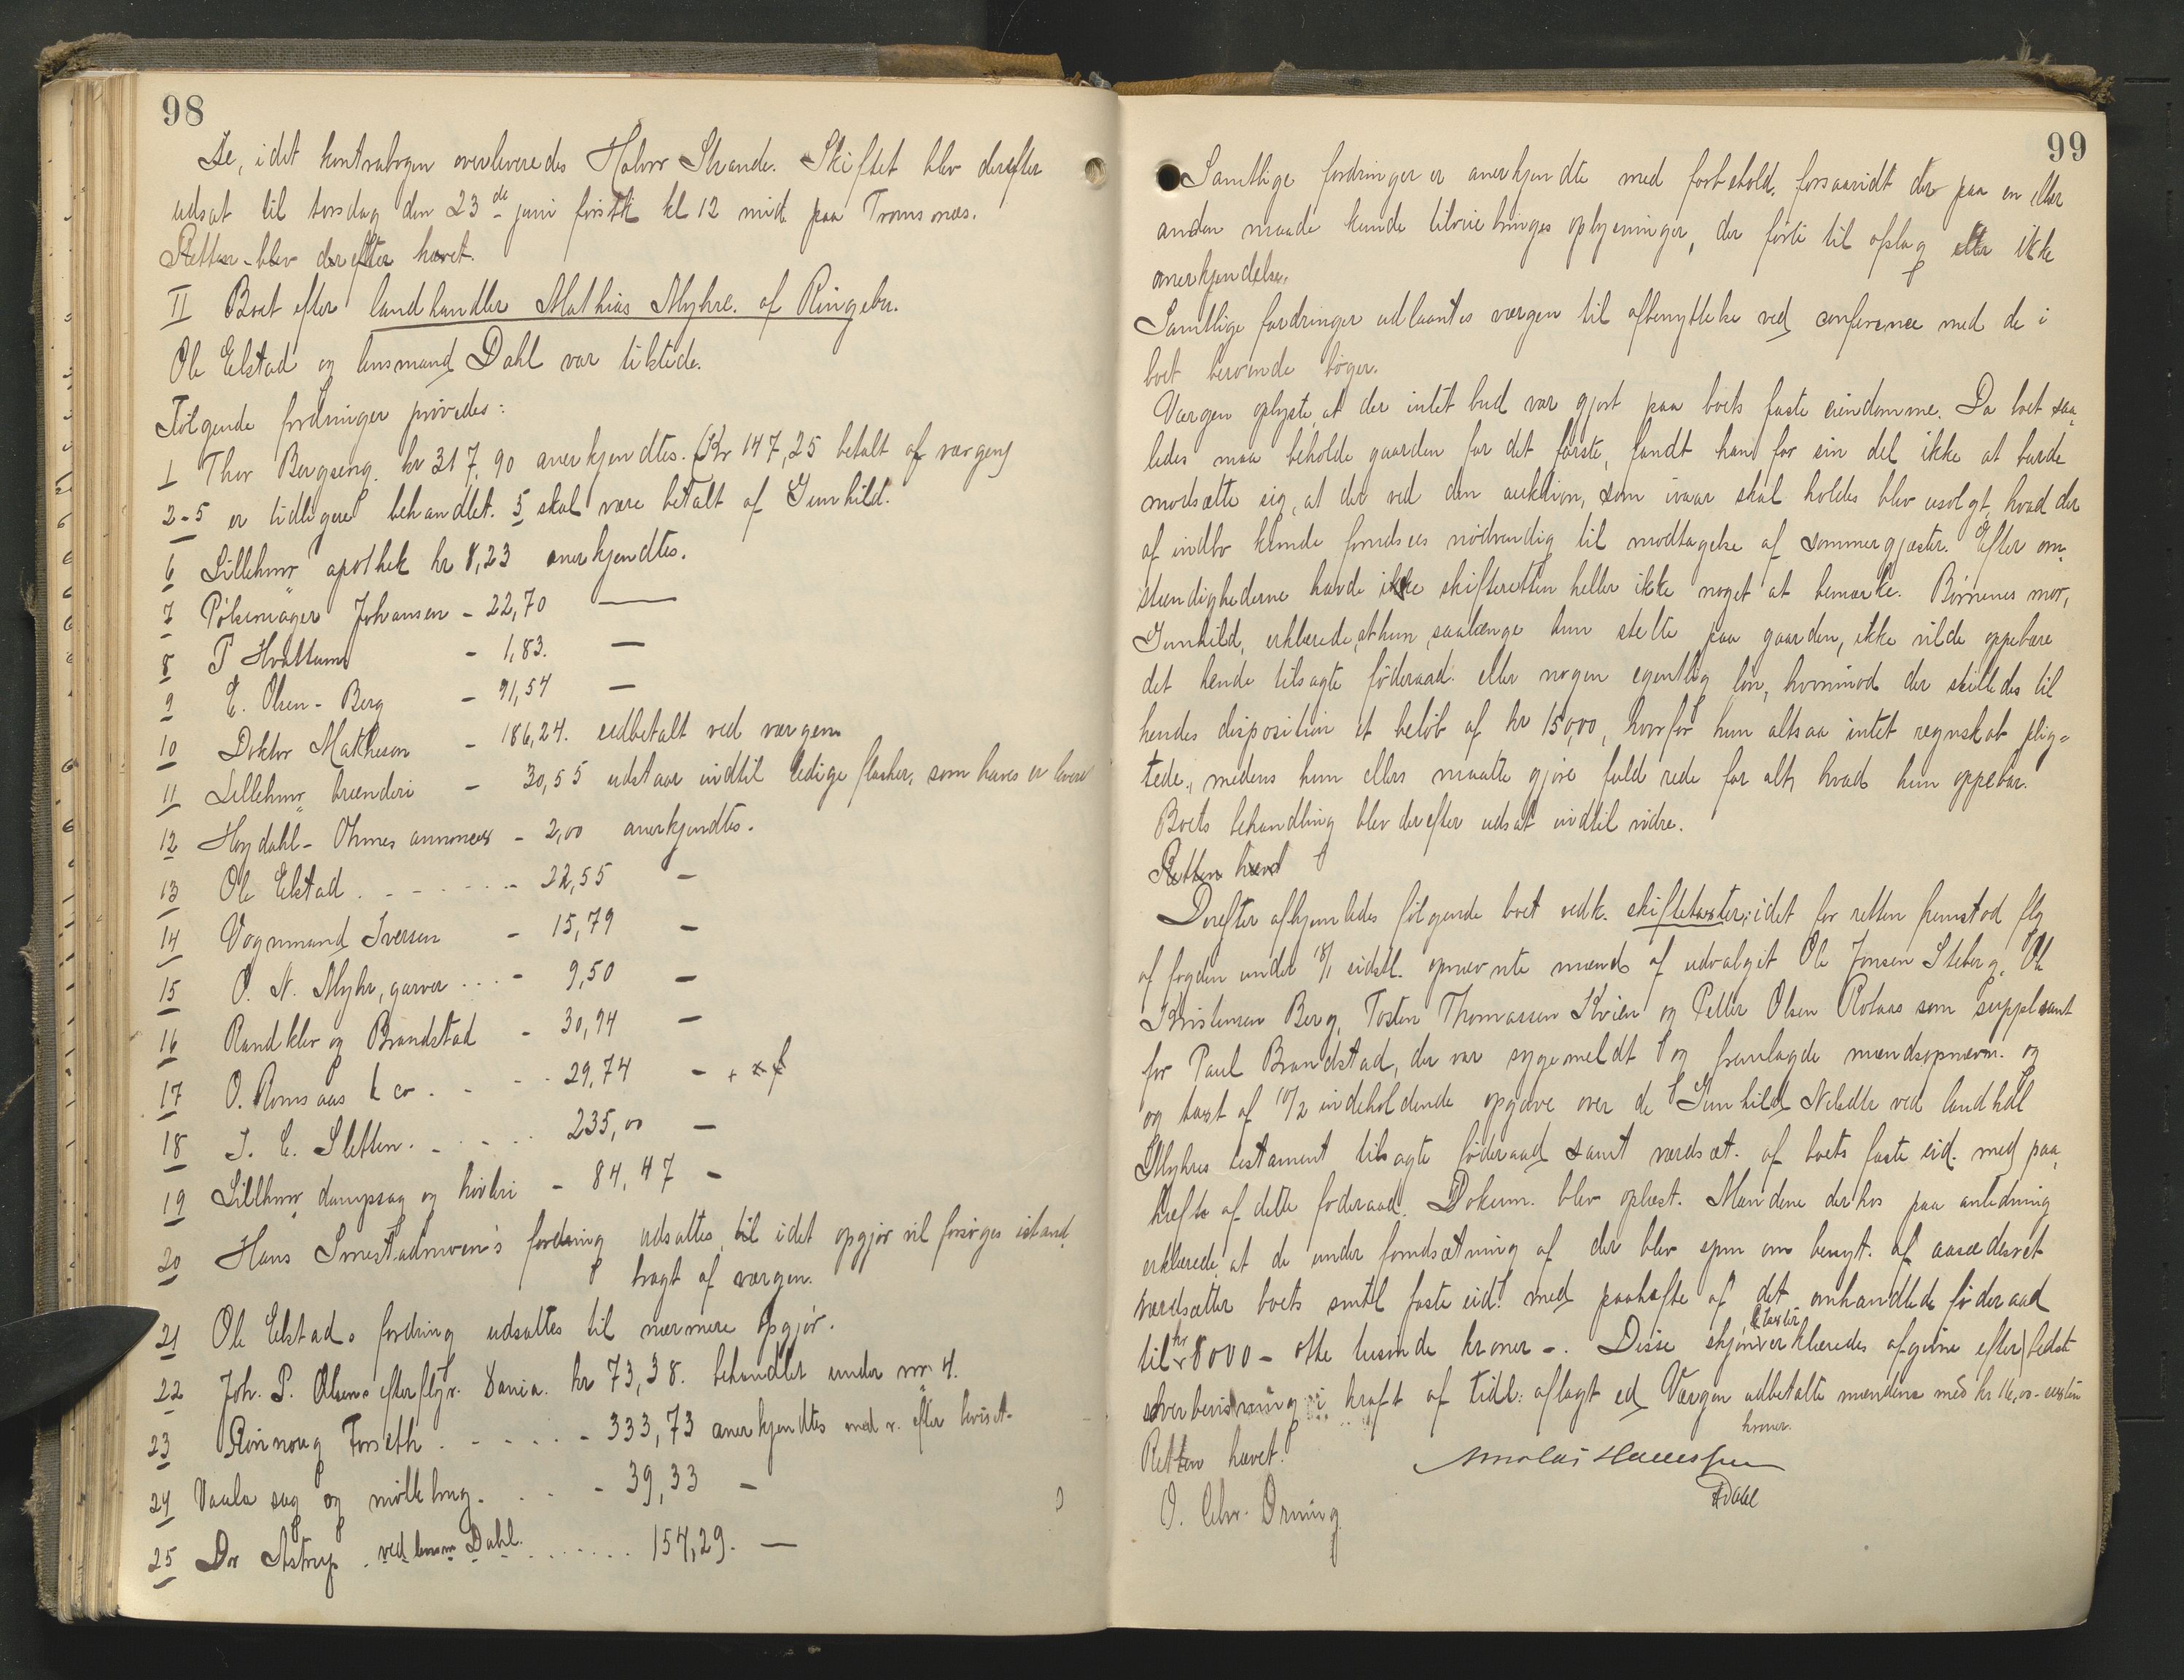 98
De, idet kontrabogen overleveredes Halvor Strande. Skiftet blev derefter
udsat til torsdag den 23de juni förstk kl 12 mid. paa Tromsnæs.
Retten blev derefter hævet.
II Boet efter landhandler Mathias Myhre af Ringebu.
Ole Elstad og lensmand Dahl var tilstede.
Følgende fordringer prövedes:
1 Thor Bergseng. kr 317,90 anerkjendtes. (Kr 147,25 betalt af værgen)
2-5 er tidligere behandlet. 5 skal være betalt af Gunhild.
6 Lillehmr apothek kr 8,23 anerkjendtes.
7 Pölsemager Johansen - 22,70 —
8 P Hvattum - 1,83. —
9 E. Olsen-Berg - 91,54 —
10 Doktor Matheson - 186,24. udbetalt ved værgen
11 Lillehmr brænderi - 30,55 udstaar indtil ledige flasker, som haves er levere
12 Høydahl-Ohmes annoncer - 2,00 anerkjendtes.
13 Ole Elstad . - - - - - 22,55 -
14 Vognmand Iversen - 15,79 -
15 O. N. Myhr, garver ... - 9,50 -
16 Randklev og Brandstad - 30,94 -
17 O. Romsaas & co . - - - 29,74 -
18 J. E. Sletten. - - - - 235,00 -
19 Lillehmr dampsag og høvleri - 84,47 -
20 Hans fordring udsattes til idet opgjør vil forsøges istand
bragt af værgen.
21 Ole Elstads fordring udsattes til nærmere opgjør.
22 Joh. P. Olsens efterflgr. Dania. kr 73,38. behandlet under nr 4.
23 Rönnoug Forseth . - - - - - 333,73 anerkjendtes med v. efter beviset.
24 Vaala sag og möllebrug. . . - 39,33 -
25 Dr Astrup ved lensm Dahl. ...... 154,29. —
99
Samtlige fordringer er anerkjendte med forbehold, forsaavidt der paa en eller
anden maade kunde tilveiebringes oplysninger, der förte til afslag eller ikke
anerkjendelse.
Samtlige fordringer udlaantes værgen til afbenyttelse ved conference med de i
boet beroende böger.
Værgen oplyste, at der intet bud var gjort paa boets faste eiendomme. Da boet saa
ledes maa beholde gaarden for det förste, fandt han for sin del ikke at burde
modsætte sig, at der ved den auktion, som ivaar skal holdes blev usolgt, hvad der
af indbo kunde forudsees nödvendig til modtagelse af sommergjæster. Efter om-
stændighederne havde ikke skifteretten heller ikke noget at bemærke. Börnenes mor,
Gunhild, erklærede, at hun, saalænge hun stelte paa gaarden, ikke vilde oppebære
det hende tilsagte föderaad eller nogen egentlig lön, hvorimod der stilledes til
hendes disposition et belöb af kr 150,00, hvorfor hun altsaa intet regnskab plig=
tede, medens hun ellers maatte gjöre fuld rede for alt, hvad hun oppebar.
Boets behandling blev derefter udsat indtil videre.
Retten hævet
Derefter afhjemledes fölgende boet vedk. skiftetaxter, idet for retten fremstod flg
af fogden under 18/1 sidstl. opnævnte mænd af udvalget Ole Jonsen Steberg, Ole
Kristensen Berg, Tosten Thomassen Kvien og Petter Olsen Rolaas som suppleant
for Paul Brandstad, der var sygemeldt og fremlagde mændsopnævn. og
og taxt af 10/2 indeholdende opgave over de Gunhild ved landhdl
Myhres testament tilsagte föderaad samt værdsæt. af boets faste eid. med paa-
hæfte af dette foderaad. Dokum. blev oplæst. Mændene derhos paa anledning
erklærede at de under forudsætning af der blev spm om benyt. af aasædesret
værdsætter boets smtl faste eid. med paahæfte af det omhandlede föderaad
til kr 8000 - otte tusinde kroner -. Disse skjön & taxter erklæredes afgivne efter bedste
overbevisning i kraft af tidl. aflagt ed Værgen udbetalte mændene med kr 16,00 - sexten
kroner.
Retten hævet.
Nicolai Hanssen
A Dahl
O. Chr. Örning